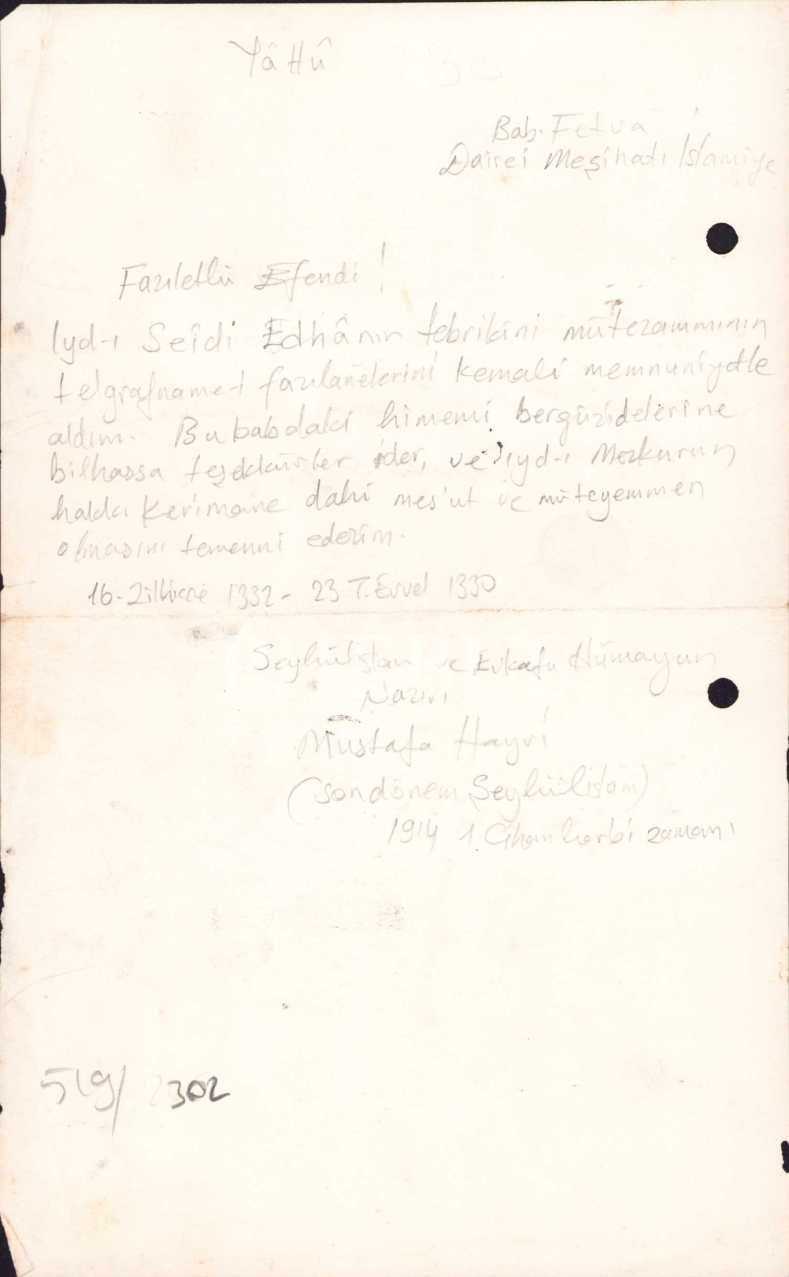 Yâ Hû
Bab. Fetva
Dairei Meşihatı İslamiye
Faziletlü Efendi!
Iyd-ı Seîdi Edhânın tebrikini mütezammının
telgrafname-i fazılanelerini kemali memnuniyetle
aldım. Bu babdaki himemi bergüzidelerine
bilhassa teşekkürler ider, ve iyd-ı Mezkurun
hakkı Kerimane dahi mes'ut ve müteyemmen
olmasını temenni ederim.
16-Zilhicce 1332 - 23 T. Evvel 1330
Şeyhülislam ve Evkafu Hümayun
Nazırı
Mustafa Hayri
(son dönem Şeyhülislam)
1914 1. Cihan harbi zamanı
519/ 2302